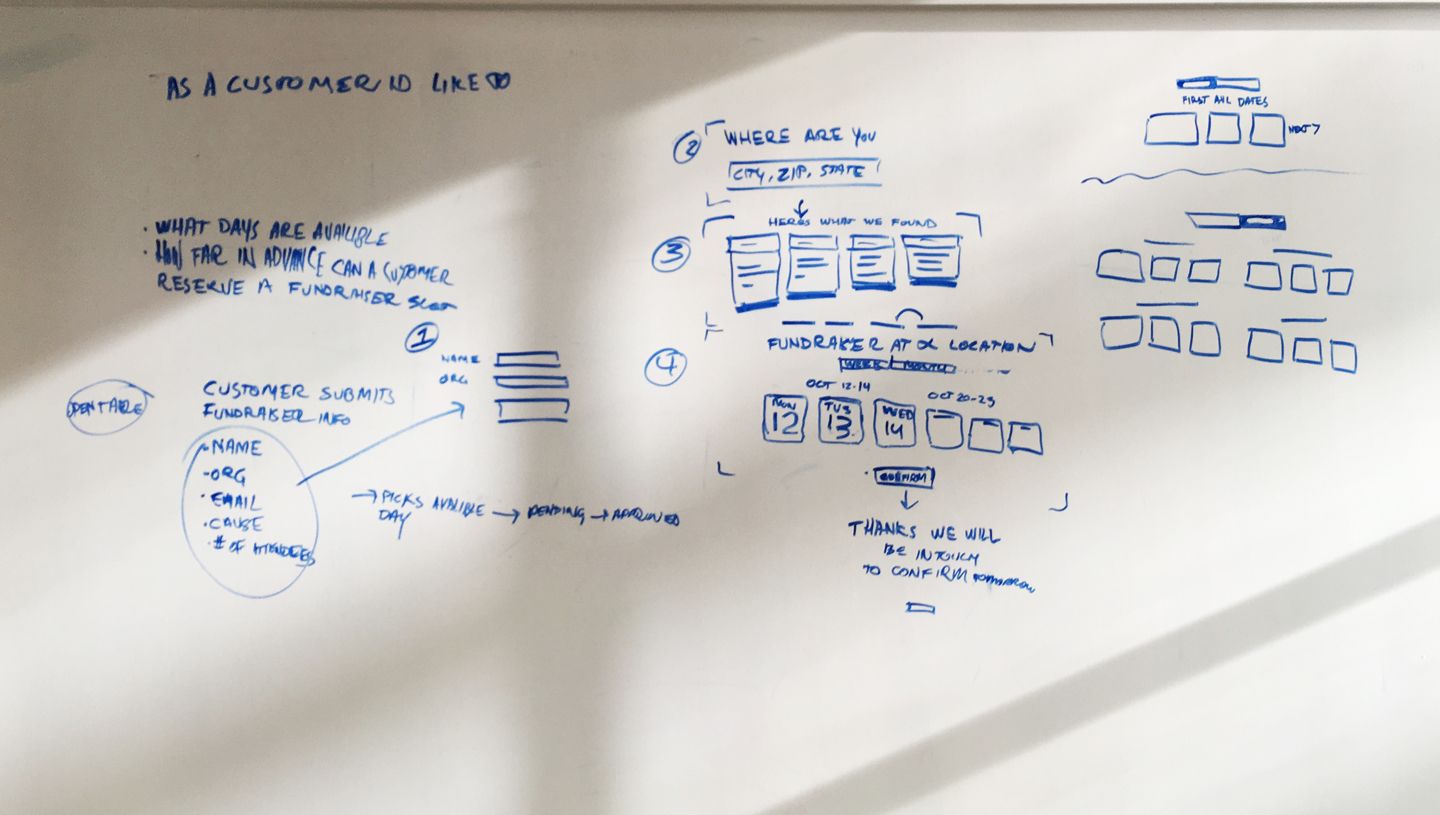 AS A CUSTOMER ID LIKE TO
· WHAT DAYS ARE AVAILIBLE
· HOW FAR IN ADVANCE CAN A CUSTOMER
RESERVE A FUNDRAISER SLOT
1
NAME
ORG
OPENTABLE
CUSTOMER SUBMITS
FUNDRAISER INFO
- NAME
- ORG
· EMAIL
· CAUSE
· # OF ATTENDEES
→ PICKS AVAILIBLE → PENDING → APPROVED
DAY
2
WHERE ARE YOU
CITY, ZIP, STATE
3
HERES WHAT WE FOUND
4
FUNDRAISER AT LOCATION
WEEK MONTH
OCT 12-14
OCT 20-23
MON
12
TUS
13
WED
14
CONFIRM
THANKS WE WILL
BE IN TOUCH
TO CONFIRM TOMORROW
FIRST AVL DATES
NEXT >